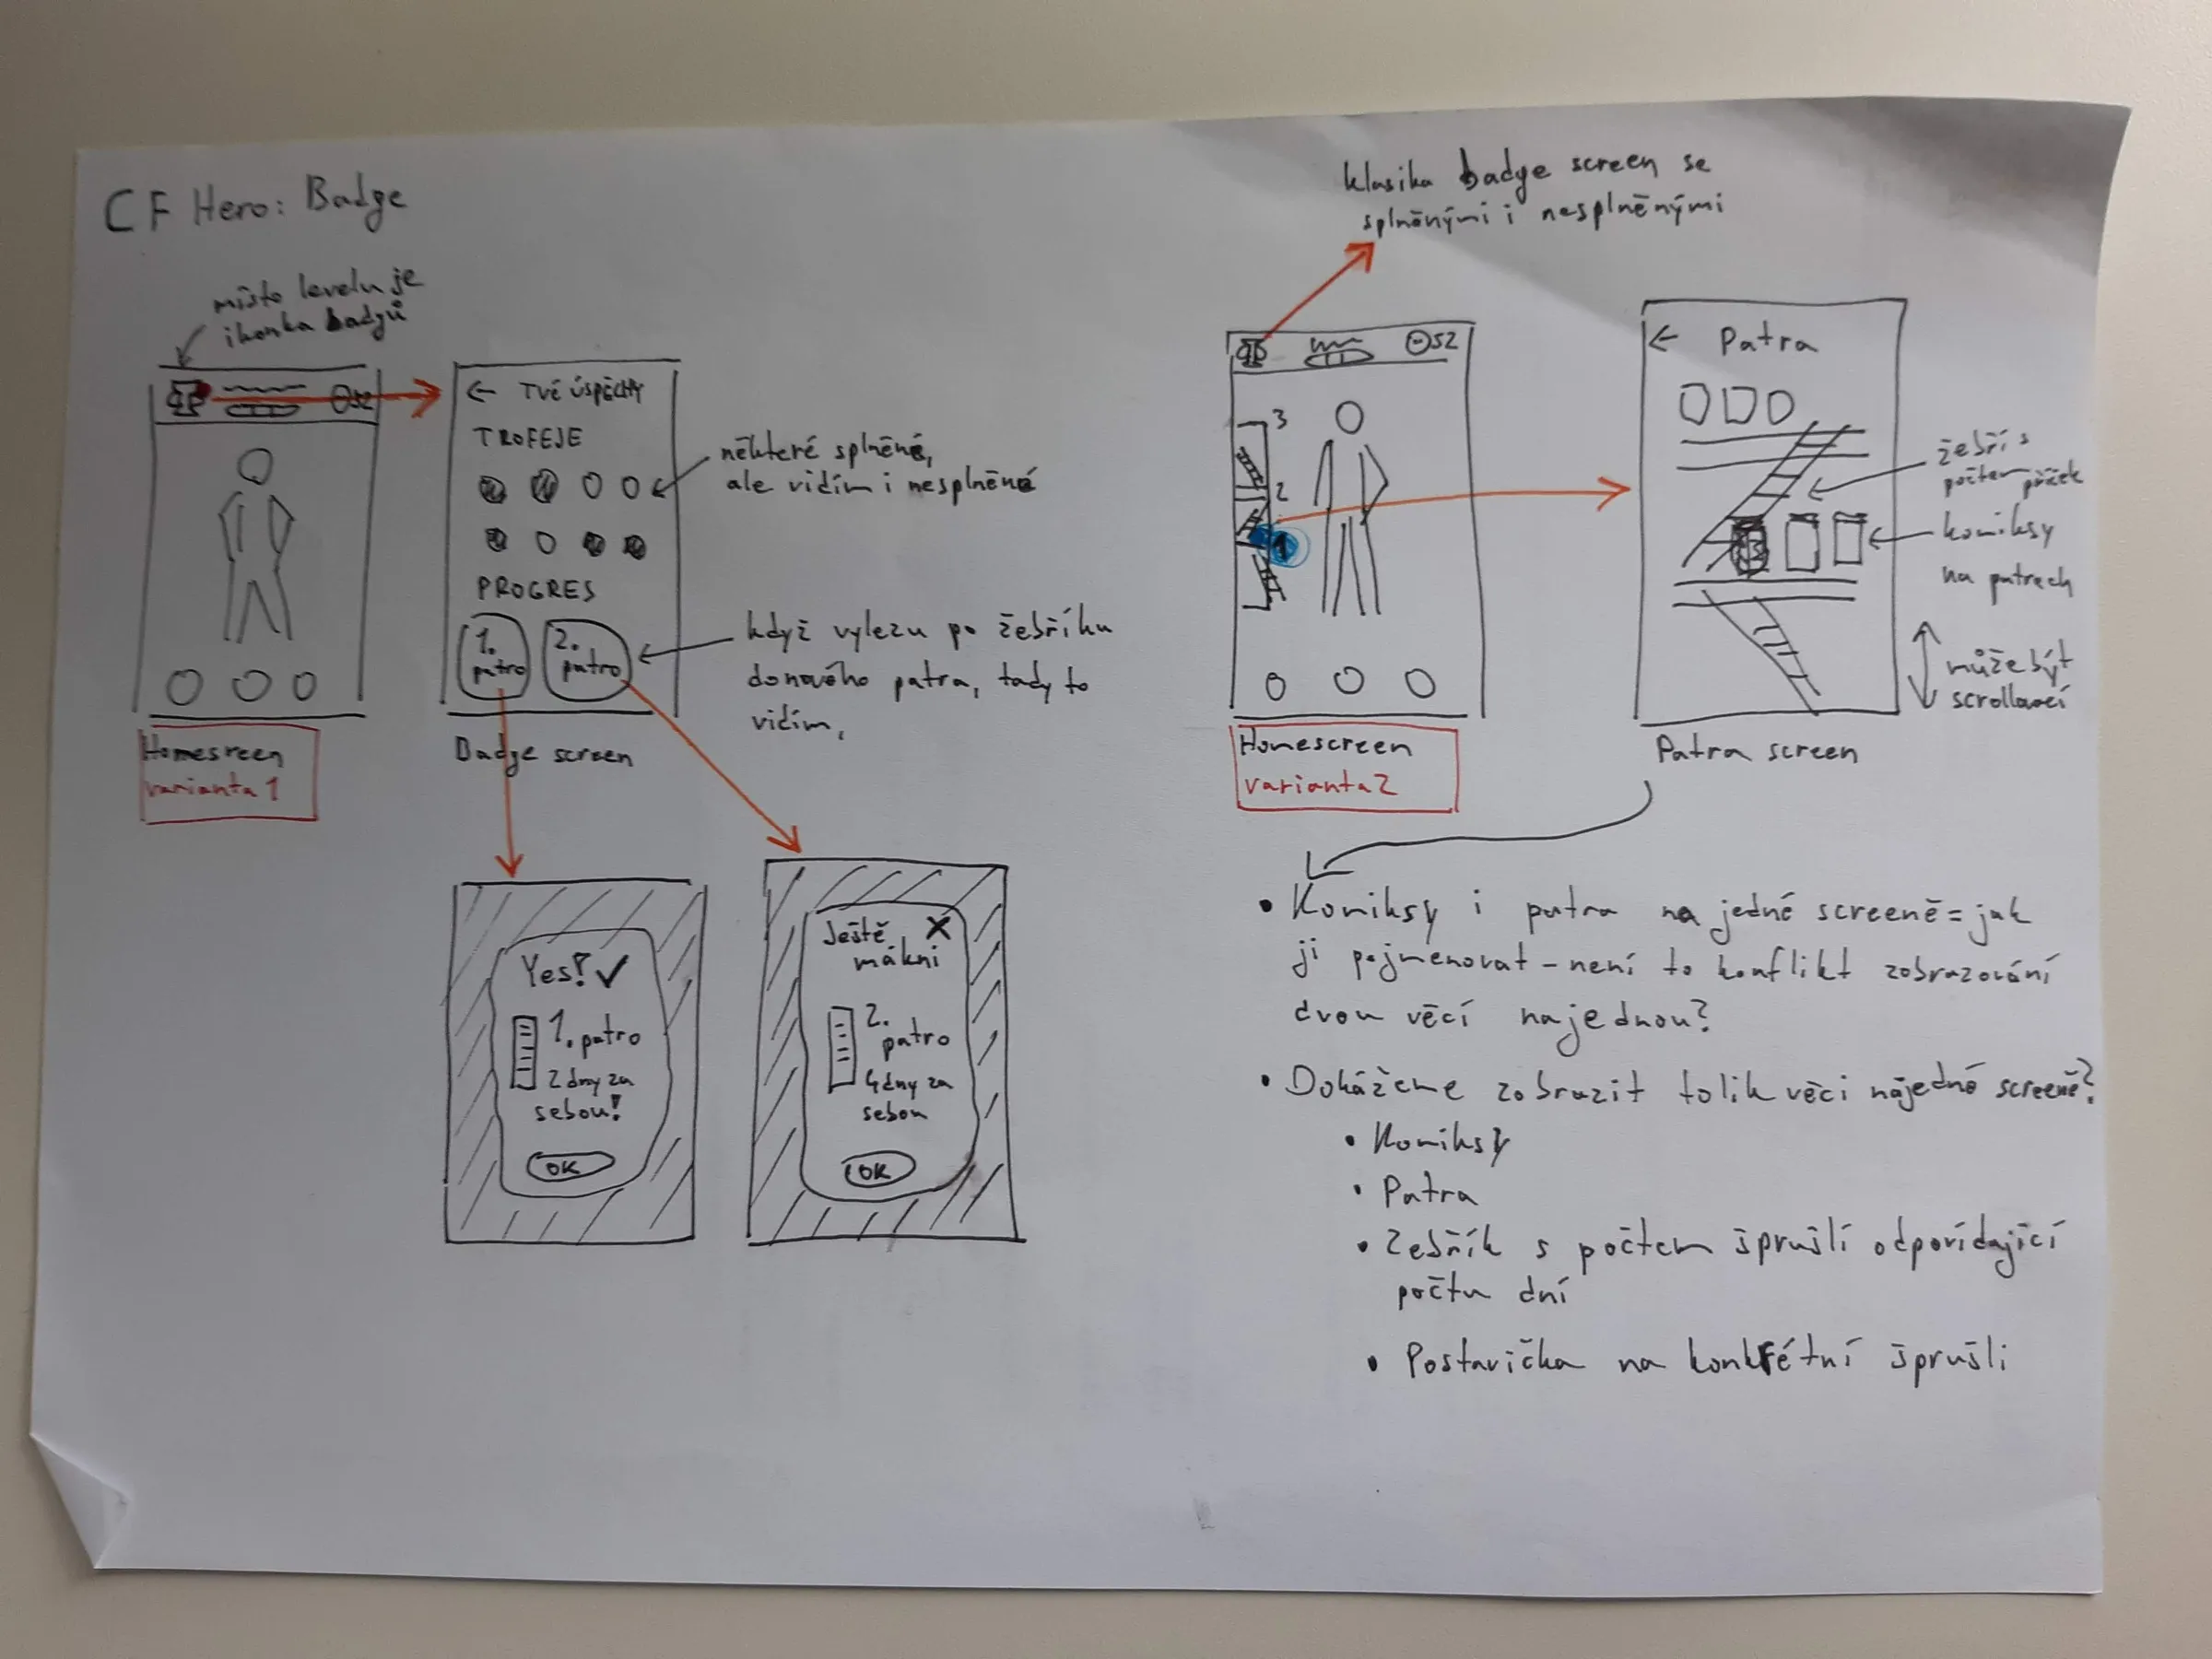 CF Hero: Badge
místo levelu je
ikonka badgů
52
Homesreen
varianta 1
← TVÉ ÚSPĚCHY
TROFEJE
PROGRES
1.
patro
2.
patro
Badge screen
některé splněné,
ale vidím i nesplněné
když vylezu po žebříku
do nového patra, tady to
vidím,
Yes! ✓
1. patro
2 dny za
sebou!
OK
Ještě X
mákni
2.
patro
4 dny za
sebou
OK
klasika badge screen se
splněnými i nesplněnými
52
3
2
1
Homescreen
varianta 2
← Patra
žebří s
počtem příček
komiksy
na patrech
může být
scrollovací
Patra screen
• Komiksy i patra na jedné screeně = jak
ji pojmenovat – není to konflikt zobrazování
dvou věcí najednou?
• Dokážeme zobrazit tolik věcí na jedné screeně?
• Komiksy
• Patra
• Žebřík s počtem šprušlí odpovídající
počtu dní
• Postavička na konkrétní šprušli